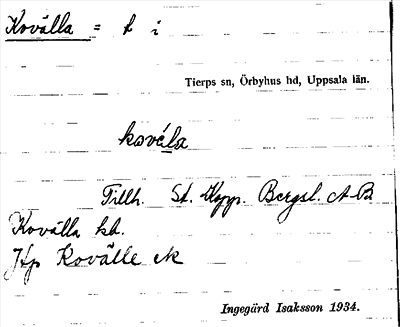 Kovälla = t i
Tierps sn, Örbyhus hd, Uppsala län.
kovä́la
Tillh. St. Kopp. Bergsl. A-B
Kovälla hd.
Jfp Kovälle ek
Ingegärd Isaksson 1934.